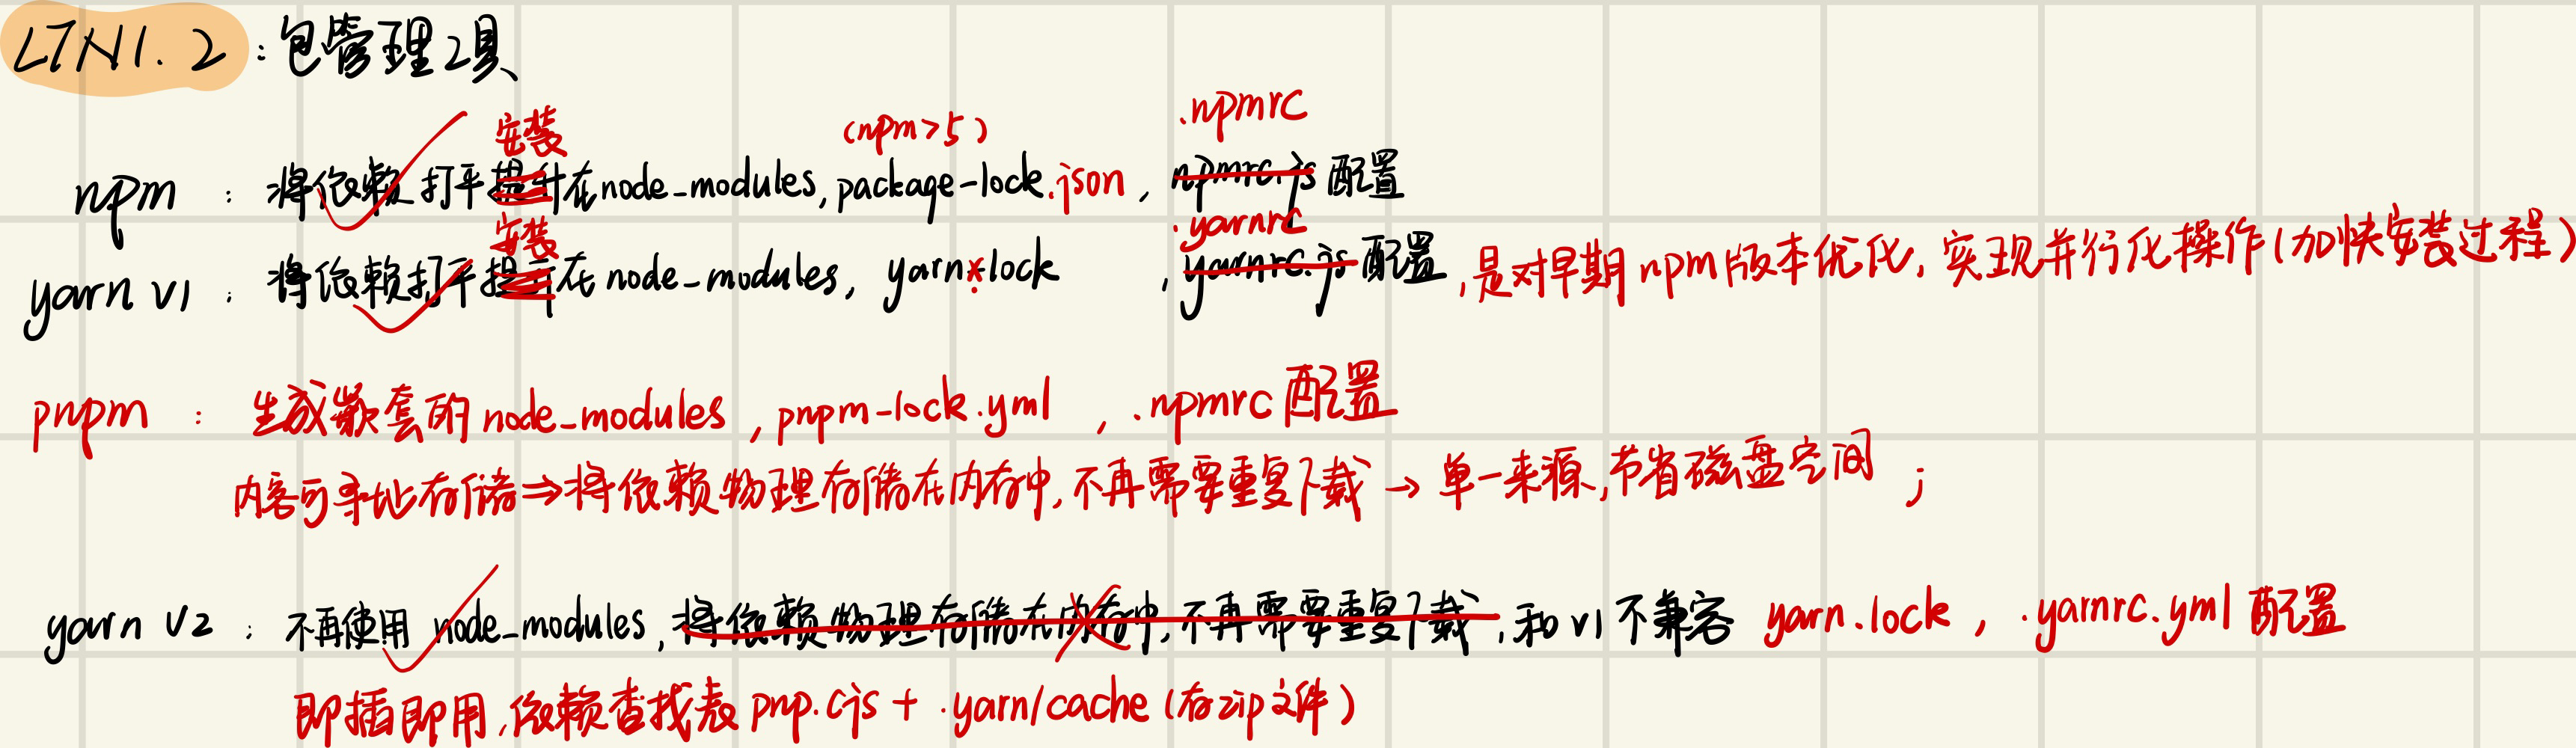 LTN1.2：包管理工具
安装 (npm>5) .npmrc
npm : 将依赖打平提升在node_modules, package-lock.json, npmrc.js 配置
安装 .yarnrc
yarn v1 : 将依赖打平提升在 node_modules, yarn.lock , yarnrc.js 配置, 是对早期 npm 版本优化, 实现并行化操作(加快安装过程)
pnpm : 生成嵌套的 node_modules , pnpm-lock.yml , .npmrc 配置
内容可寻址存储⇒将依赖物理存储在内存中, 不再需要重复下载 → 单一来源, 节省磁盘空间 ;
yarn v2 : 不再使用 node_modules, 将依赖物理存储在内存中, 不再需要重复下载, 和 v1 不兼容 yarn.lock , .yarnrc.yml 配置
即插即用, 依赖查找表 pnp.cjs + .yarn/cache (存zip文件)